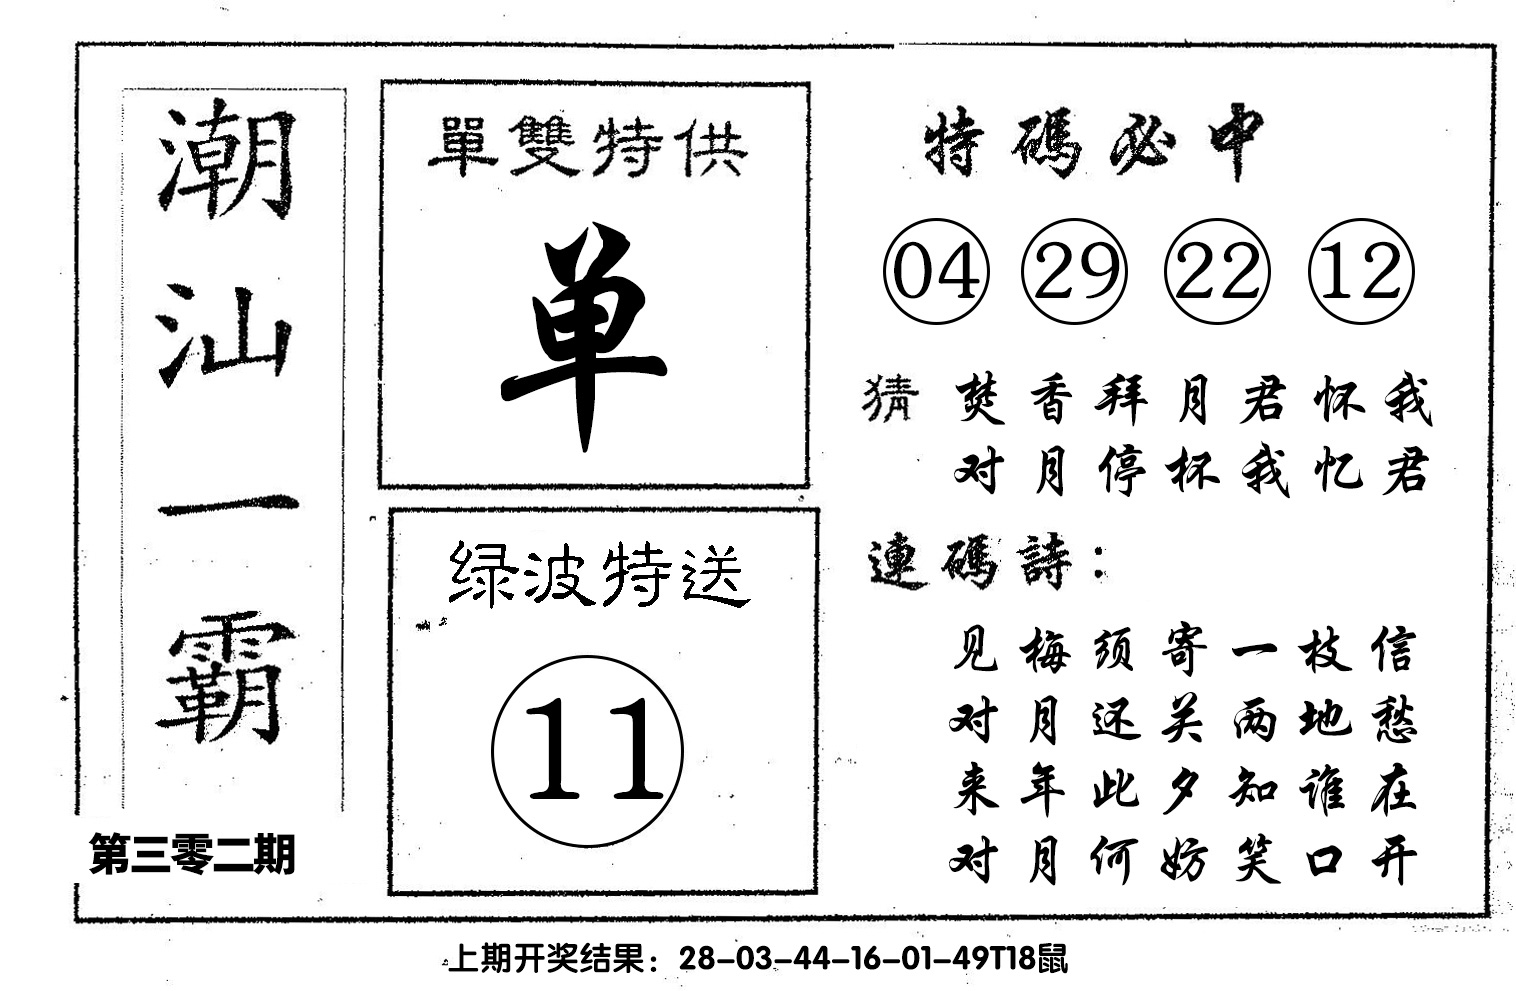 潮汕一霸
第三零二期
單雙特供
单
绿波特送
11
特碼必中
04 29 22 12
猜 焚香拜月君怀我
对月停杯我忆君
連碼詩：
见梅须寄一枝信
对月还关两地愁
来年此夕知谁在
对月何妨笑口开
上期开奖结果：28-03-44-16-01-49T18鼠